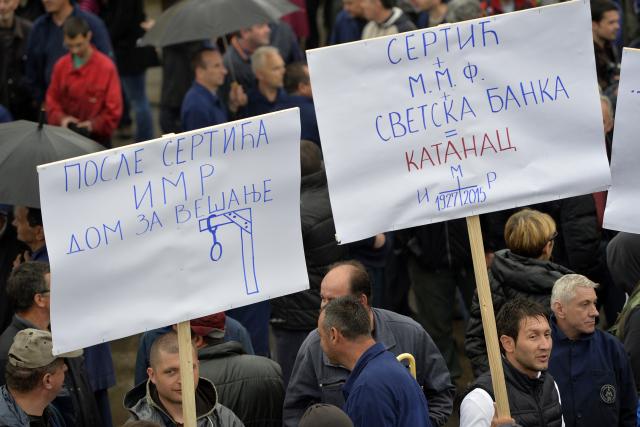 ПОСЛЕ СЕРТИЋА
ИМР
ДОМ ЗА ВЕШАЊЕ
СЕРТИЋ
+
М.М.Ф.
+
СВЕТСКА БАНКА
=
КАТАНАЦ
М
И Р
1927/2015